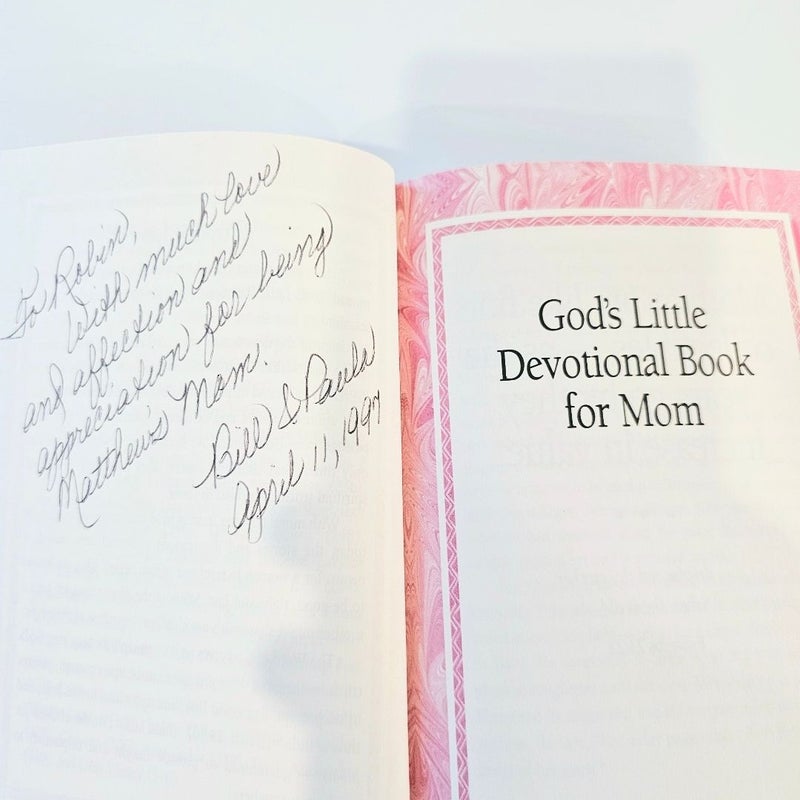 To Robin,
With much love
and affection and
appreciation for being
Matthew's Mom.
Bill & Paula
April 11, 1997
God's Little
Devotional Book
for Mom